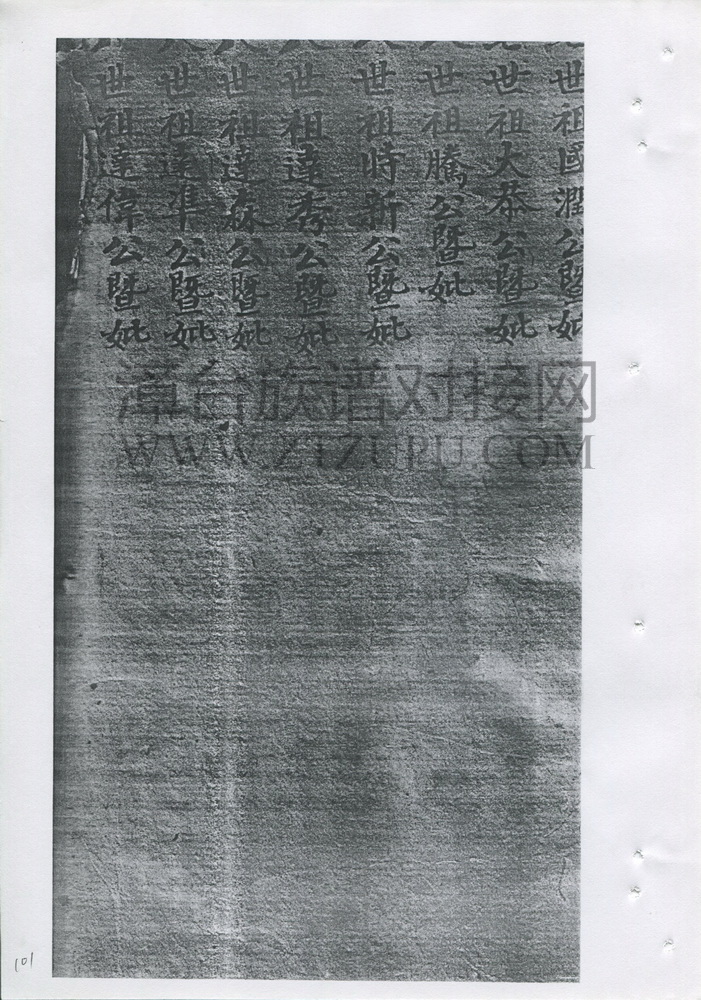 世祖國潤公暨妣
世祖大恭公暨妣
世祖騰公暨妣
世祖時新公暨妣
世祖達秀公暨妣
世祖達森公暨妣
世祖達準公暨妣
世祖達偉公暨妣
漳台族谱对接网
WWW.ZTZUPU.COM
101